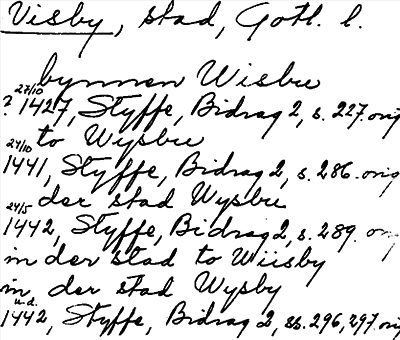 Visby, stad, Gotl. l.
bynnen Wisbu
27/10
? 1427, Styffe, Bidrag 2, s. 227. orig
to Wysbu
24/10
1441, Styffe, Bidrag 2, s. 286. orig
der stad Wysbu
24/5
1442, Styffe, Bidrag 2, s. 289. orig
in der stad to Wiisby
in der stad Wysby
u.d.
1442, Styffe, Bidrag 2, ss. 296, 297. orig